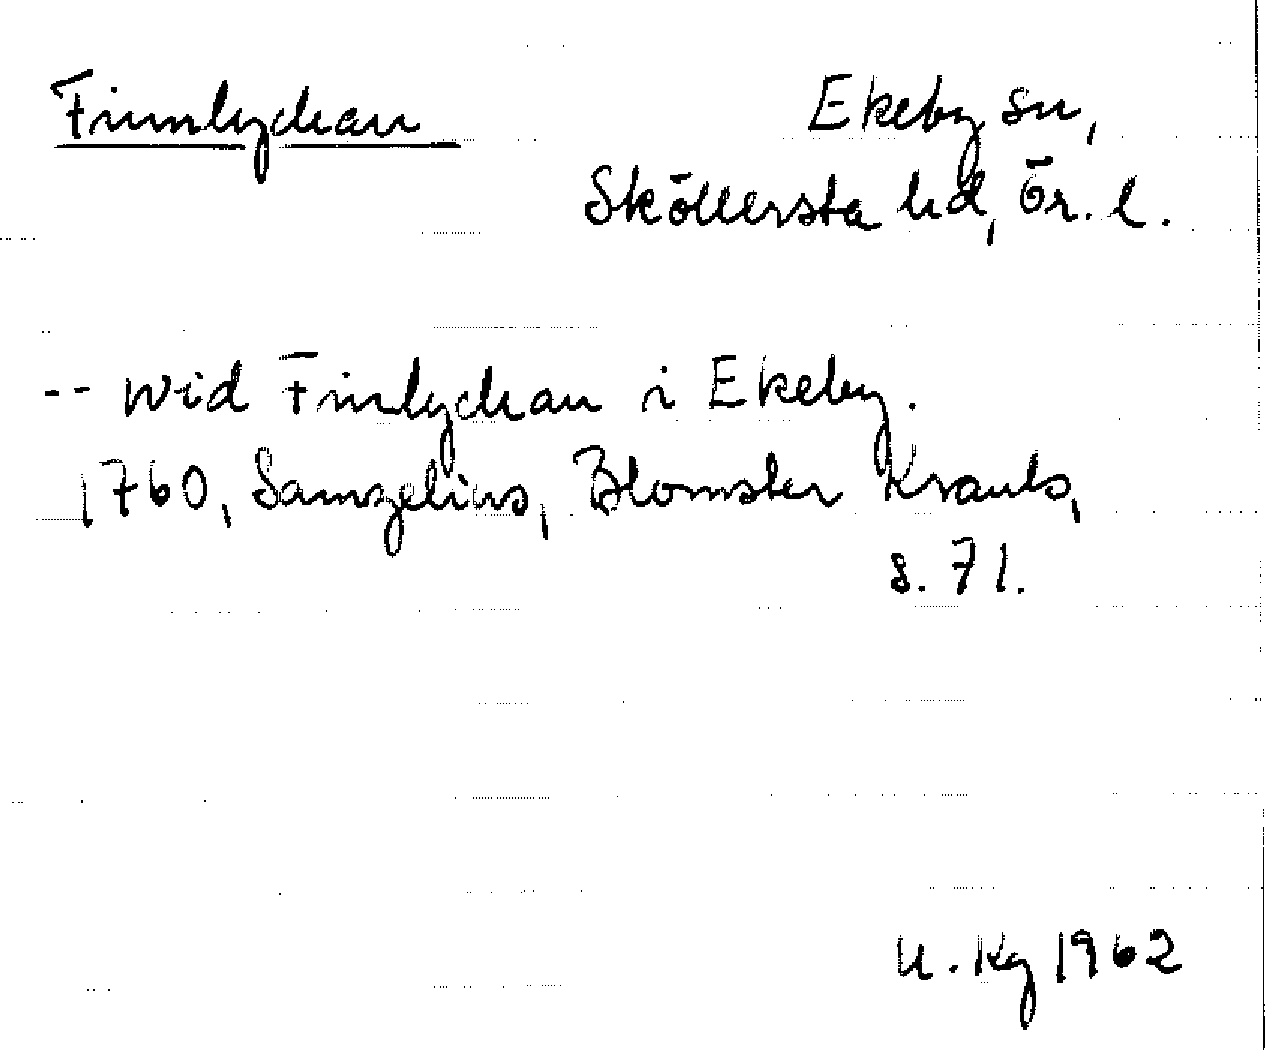 Finnlyckan
Ekeby sn,
Sköllersta hd, Ör. l.
-- wid Finlyckan i Ekeby.
1760, Samzelius, Blomster Krants,
s. 71.
U. Kg 1962